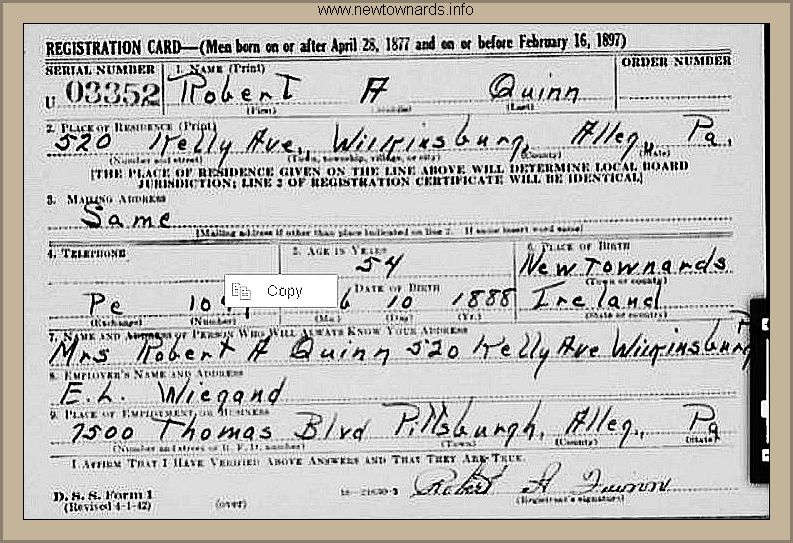 www.newtownards.info
REGISTRATION CARD—(Men born on or after April 28, 1877 and on or before February 16, 1897)
SERIAL NUMBER
1. NAME (Print)
ORDER NUMBER
U 03352
Robert A Quinn
(First) (Middle) (Last)
2. PLACE OF RESIDENCE (Print)
520 Kelly Ave, Wilkinsburg, Alleg, Pa.
(Number and street) (Town, township, village, or city) (County) (State)
[THE PLACE OF RESIDENCE GIVEN ON THE LINE ABOVE WILL DETERMINE LOCAL BOARD
JURISDICTION; LINE 2 OF REGISTRATION CERTIFICATE WILL BE IDENTICAL]
3. MAILING ADDRESS
Same
[Mailing address if other than place indicated on line 2. If same insert word same]
4. TELEPHONE
5. AGE IN YEARS
6. PLACE OF BIRTH
54
Newtownards
(Town or county)
Copy
DATE OF BIRTH
Pe
6 10 1888
Ireland
(Exchange) (Number) (Mo.) (Day) (Yr.) (State or country)
7. NAME AND ADDRESS OF PERSON WHO WILL ALWAYS KNOW YOUR ADDRESS
Mrs Robert A Quinn 520 Kelly Ave Wilkinsburg
8. EMPLOYER'S NAME AND ADDRESS
E.L. Wiegand
9. PLACE OF EMPLOYMENT OR BUSINESS
7500 Thomas Blvd Pittsburgh, Alleg., Pa
(Number and street or R. F. D. number) (Town) (County) (State)
I AFFIRM THAT I HAVE VERIFIED ABOVE ANSWERS AND THAT THEY ARE TRUE.
D. S. S. Form 1
(Revised 4-1-42) (over) 16—21630-2
Robert A Quinn
(Registrant's signature)